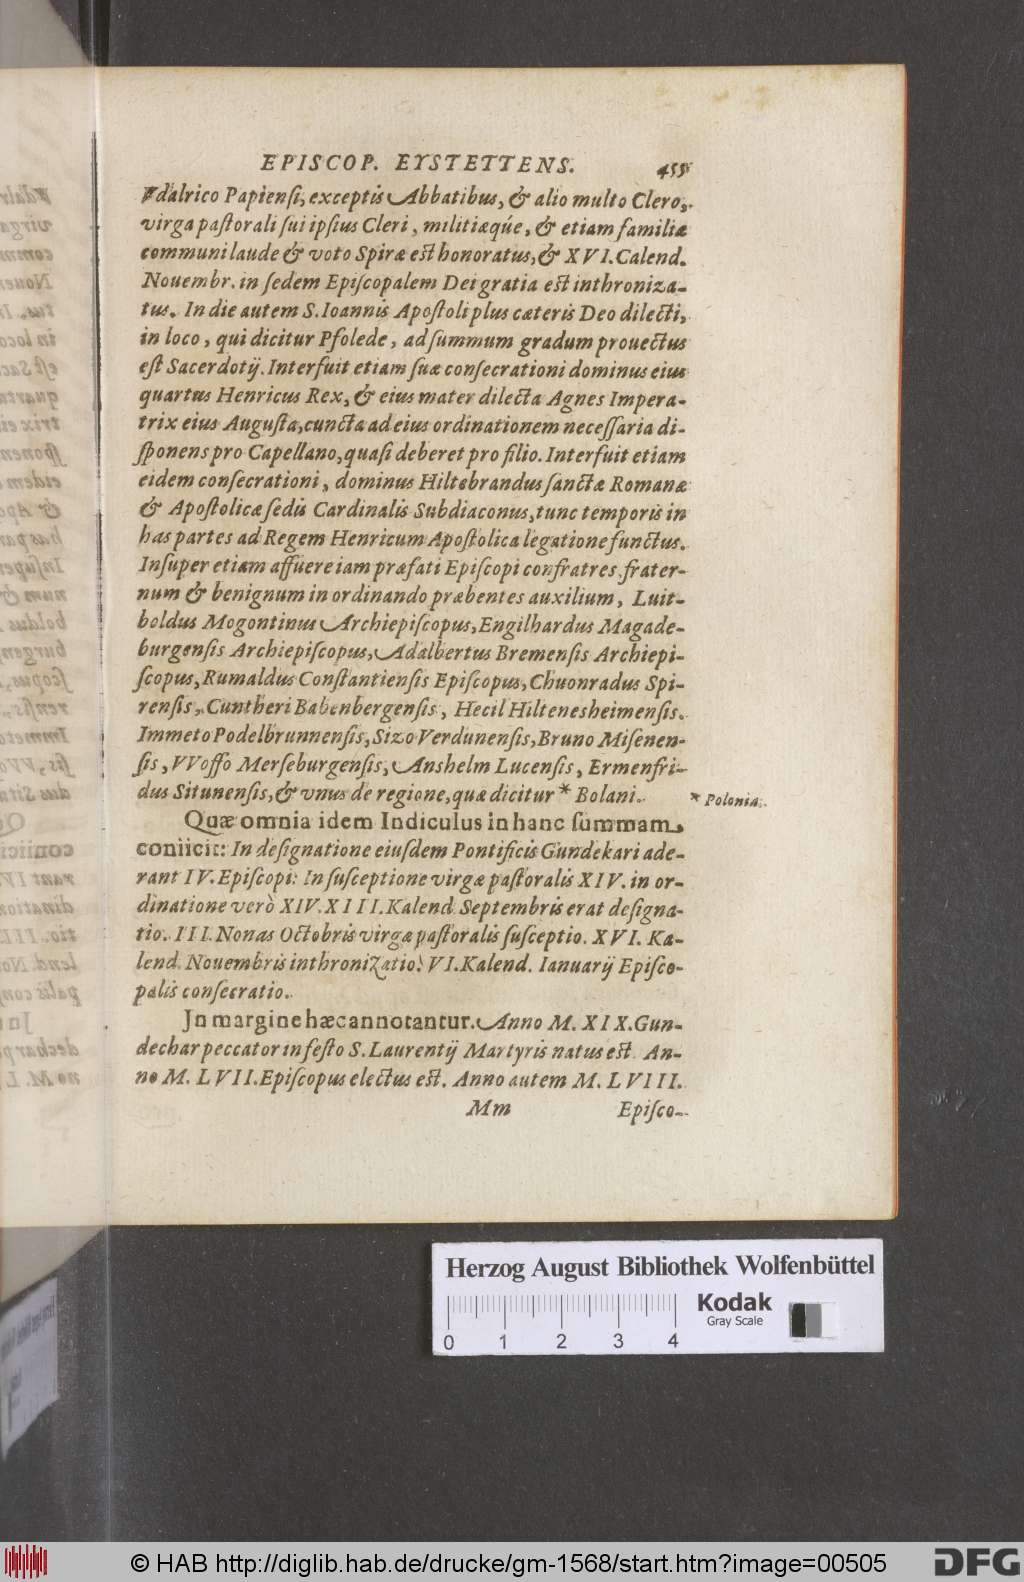 EPISCOP. EYSTETTENS. 455
Vdalrico Papiensi, exceptis Abbatibus, & alio multo Clero,
virga pastorali sui ipsius Cleri, militiæque, & etiam familiæ
communi laude & voto Spiræ est honoratus, & XVI. Calend.
Nouembr. in sedem Episcopalem Dei gratia est inthroniza-
tus. In die autem S. Ioannis Apostoli plus cæteris Deo dilecti,
in loco, qui dicitur Pfolede, ad summum gradum prouectus
est Sacerdotij. Interfuit etiam suæ consecrationi dominus eius
quartus Henricus Rex, & eius mater dilecta Agnes Impera-
trix eius Augusta, cuncta ad eius ordinationem necessaria di-
sponens pro Capellano, quasi deberet pro filio. Interfuit etiam
eidem consecrationi, dominus Hiltebrandus sanctæ Romanæ
& Apostolicæ sedis Cardinalis Subdiaconus, tunc temporis in
has partes ad Regem Henricum Apostolica legatione functus.
Insuper etiam affuere iam præfati Episcopi confratres, frater-
num & benignum in ordinando præbentes auxilium, Luit-
boldus Mogontinus Archiepiscopus, Engilhardus Magade-
burgensis Archiepiscopus, Adalbertus Bremensis Archiepi-
scopus, Rumaldus Constantiensis Episcopus, Chuonradus Spi-
rensis, Cuntheri Babenbergensis, Hecil Hiltenesheimensis.
Immeto Podelbrunnensis, Sizo Verdunensis, Bruno Misenen-
sis, VVoffo Merseburgensis, Anshelm Lucensis, Ermenfri-
dus Situnensis, & vnus de regione, quæ dicitur * Bolani.
* Polonia.
Quæ omnia idem Indiculus in hanc summam
coniicit: In designatione eiusdem Pontificis Gundekari ade-
rant IV. Episcopi: In susceptione virgæ pastoralis XIV. in or-
dinatione verò XIV. XIII. Kalend. Septembris erat designa-
tio. III. Nonas Octobris virgæ pastoralis susceptio. XVI. Ka-
lend. Nouembris inthronizatio. VI. Kalend. Ianuarij Episco-
palis consecratio.
In margine hæc annotantur. Anno M. XIX. Gun-
dechar peccator in festo S. Laurentij Martyris natus est. An-
no M. LVII. Episcopus electus est. Anno autem M. LVIII.
Mm Episco-
Herzog August Bibliothek Wolfenbüttel
0 1 2 3 4
Kodak
Gray Scale
© HAB http://diglib.hab.de/drucke/gm-1568/start.htm?image=00505
DFG